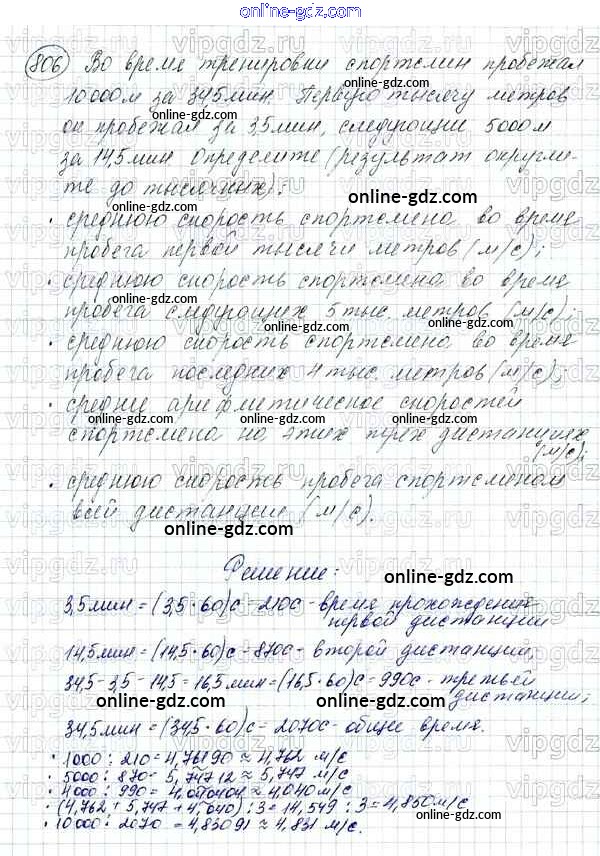 online-gdz.com
806 Во время тренировки спортсмен пробежал
10 000м за 34,5 мин. Первую тысячу метров
он пробежал за 3,5 мин, следующие 5000 м
за 14,5 мин. Определите (результат округли-
те до тысячных):
· среднюю скорость спортсмена во время
пробега первой тысячи метров (м/с);
· среднюю скорость спортсмена во время
пробега следующих 5 тыс. метров (м/с);
· среднюю скорость спортсмена во время
пробега последних 4 тыс. метров (м/с);
· среднее арифметическое скоростей
спортсмена на этих трех дистанциях
(м/с);
· среднюю скорость пробега спортсменом
всей дистанции (м/с).
Решение:
3,5 мин = (3,5 · 60)с = 210с - время прохождения
первой дистанции
14,5 мин = (14,5 · 60)с = 870с - второй дистанции;
34,5 - 3,5 - 14,5 = 16,5 мин = (16,5 · 60)с = 990с - третьей
дистанции;
34,5 мин = (34,5 · 60)с = 2070с - общее время.
· 1000 : 210 = 4,76190 ≈ 4,762 м/с
· 5000 : 870 = 5,74712 ≈ 5,747 м/с
· 4000 : 990 = 4,040404 ≈ 4,040 м/с
· (4,762 + 5,747 + 4,040) : 3 = 14,549 : 3 = 4,850 м/с
· 10 000 : 2070 = 4,83091 ≈ 4,831 м/с.